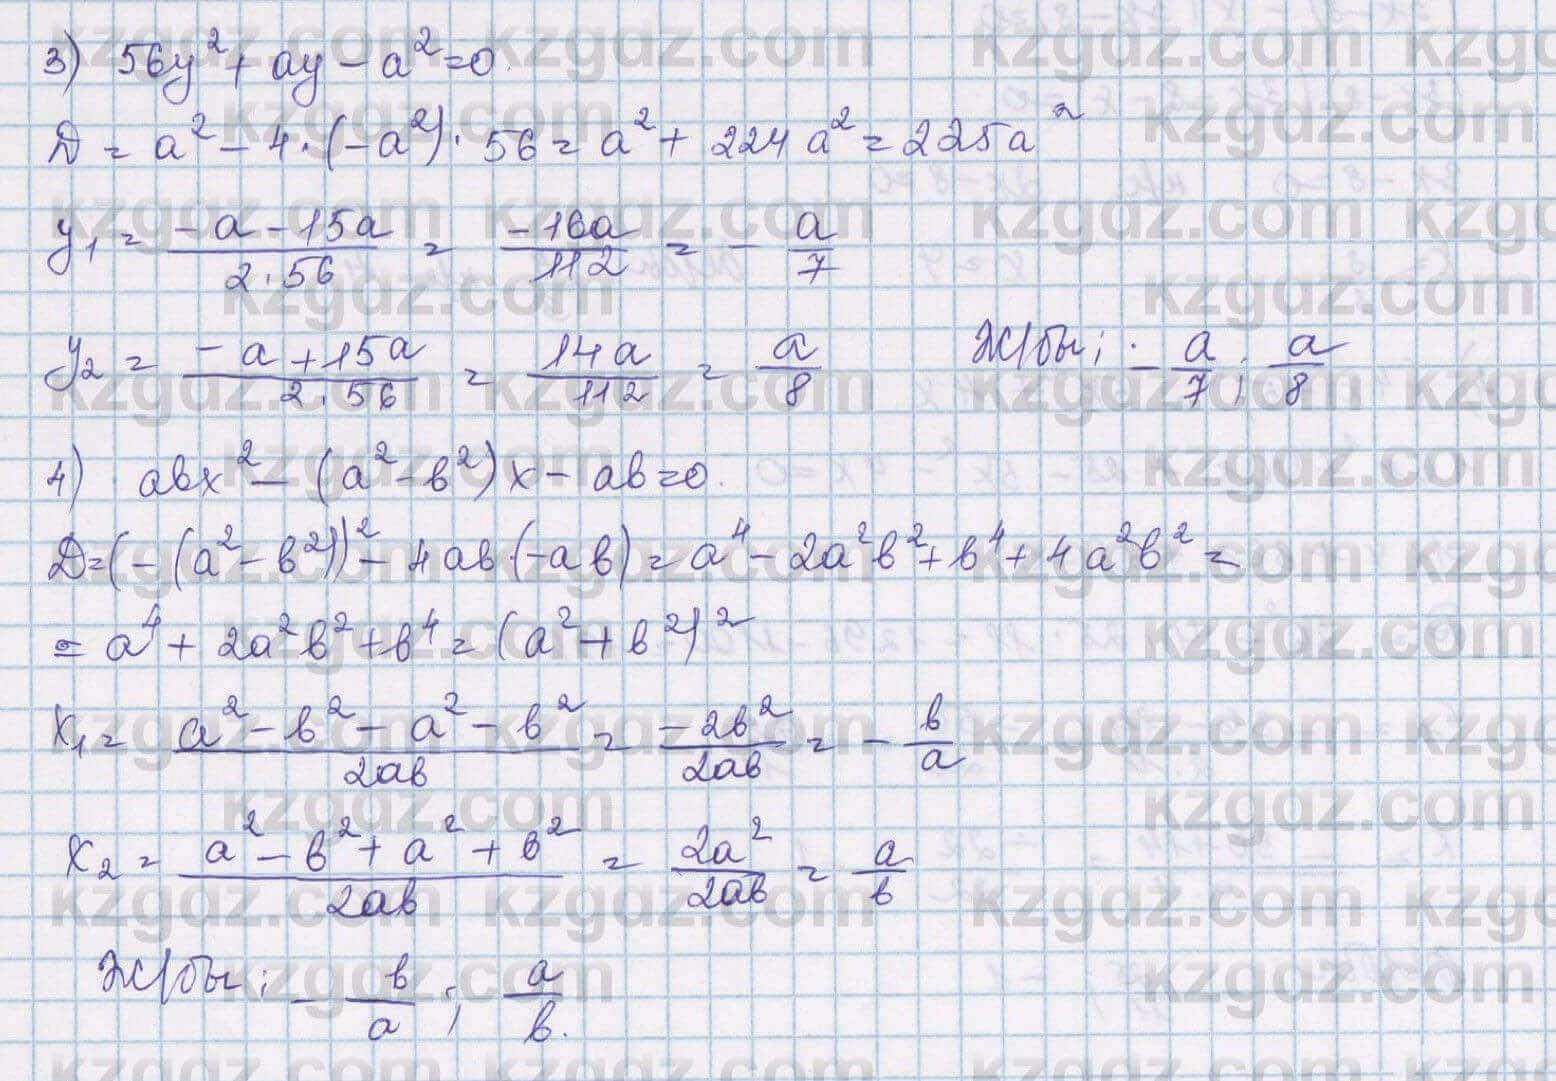 3) 56y² + ay - a² = 0.
D = a² - 4 · (-a²) · 56 = a² + 224a² = 225a²
y₁ = (-a - 15a)/(2·56) = (-16a)/112 = - a/7
y₂ = (-a + 15a)/(2·56) = 14a/112 = a/8 Ж/бы; - a/7; a/8
4) abx² - (a² - b²)x - ab = 0.
D = (-(a² - b²))² - 4ab·(-ab) = a⁴ - 2a²b² + b⁴ + 4a²b² =
= a⁴ + 2a²b² + b⁴ = (a² + b²)²
x₁ = (a² - b² - a² - b²)/(2ab) = (-2b²)/(2ab) = - b/a
x₂ = (a² - b² + a² + b²)/(2ab) = 2a²/(2ab) = a/b
Ж/бы; - b/a; a/b.
kzgdz.com